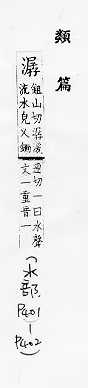 類篇
潺
鉏山切潺湲
流水皃又鋤
切一曰水聲
文一重音一
(水部 P401-P402)